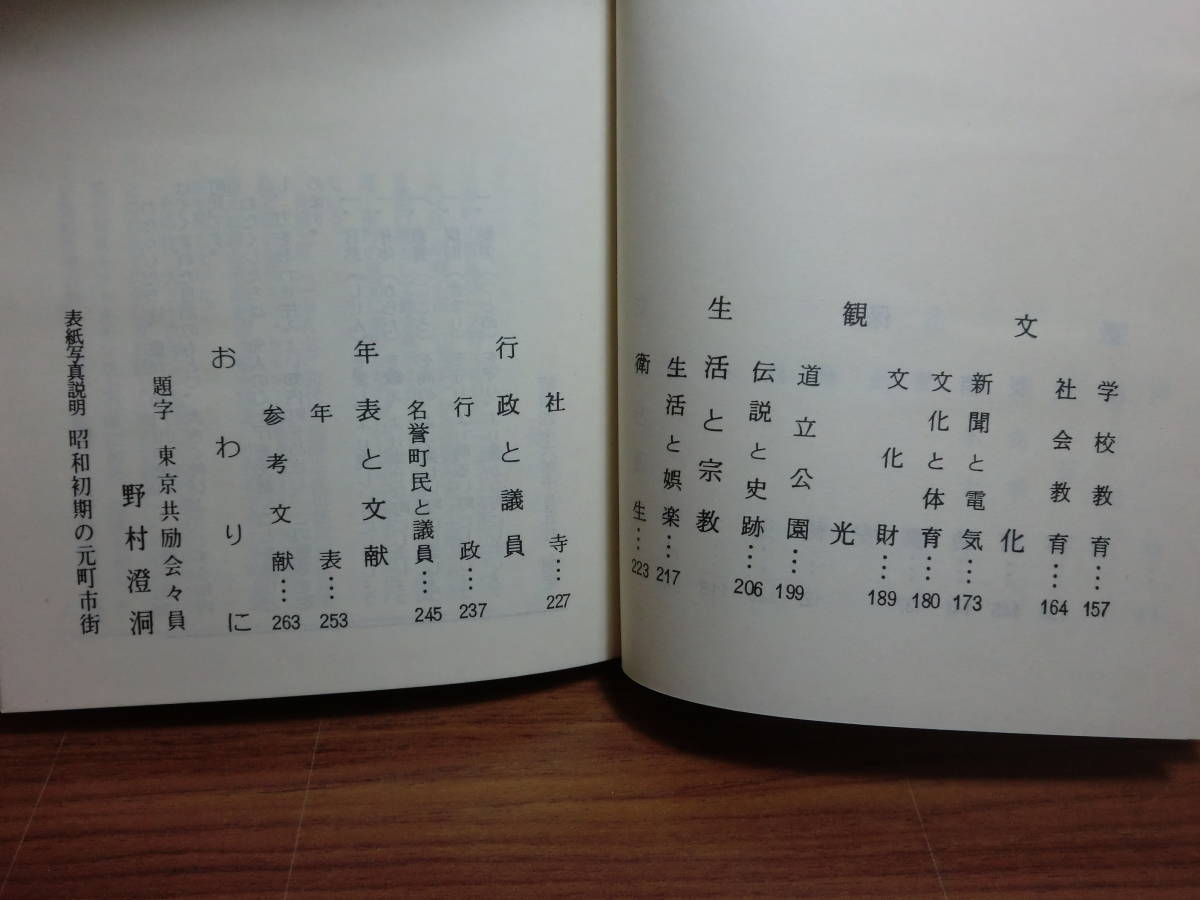 学校教育…157
社会教育…164
文化
新聞と電気…173
文化と体育…180
文化財…189
観光
道立公園…199
伝説と史跡…206
生活と宗教
生活と娯楽…217
衛生…223
社寺…227
行政と議員
行政…237
名誉町民と議員…245
年表と文献
年表…253
参考文献…263
おわりに
題字 東京共励会々員
野村澄洞
表紙写真説明 昭和初期の元町市街